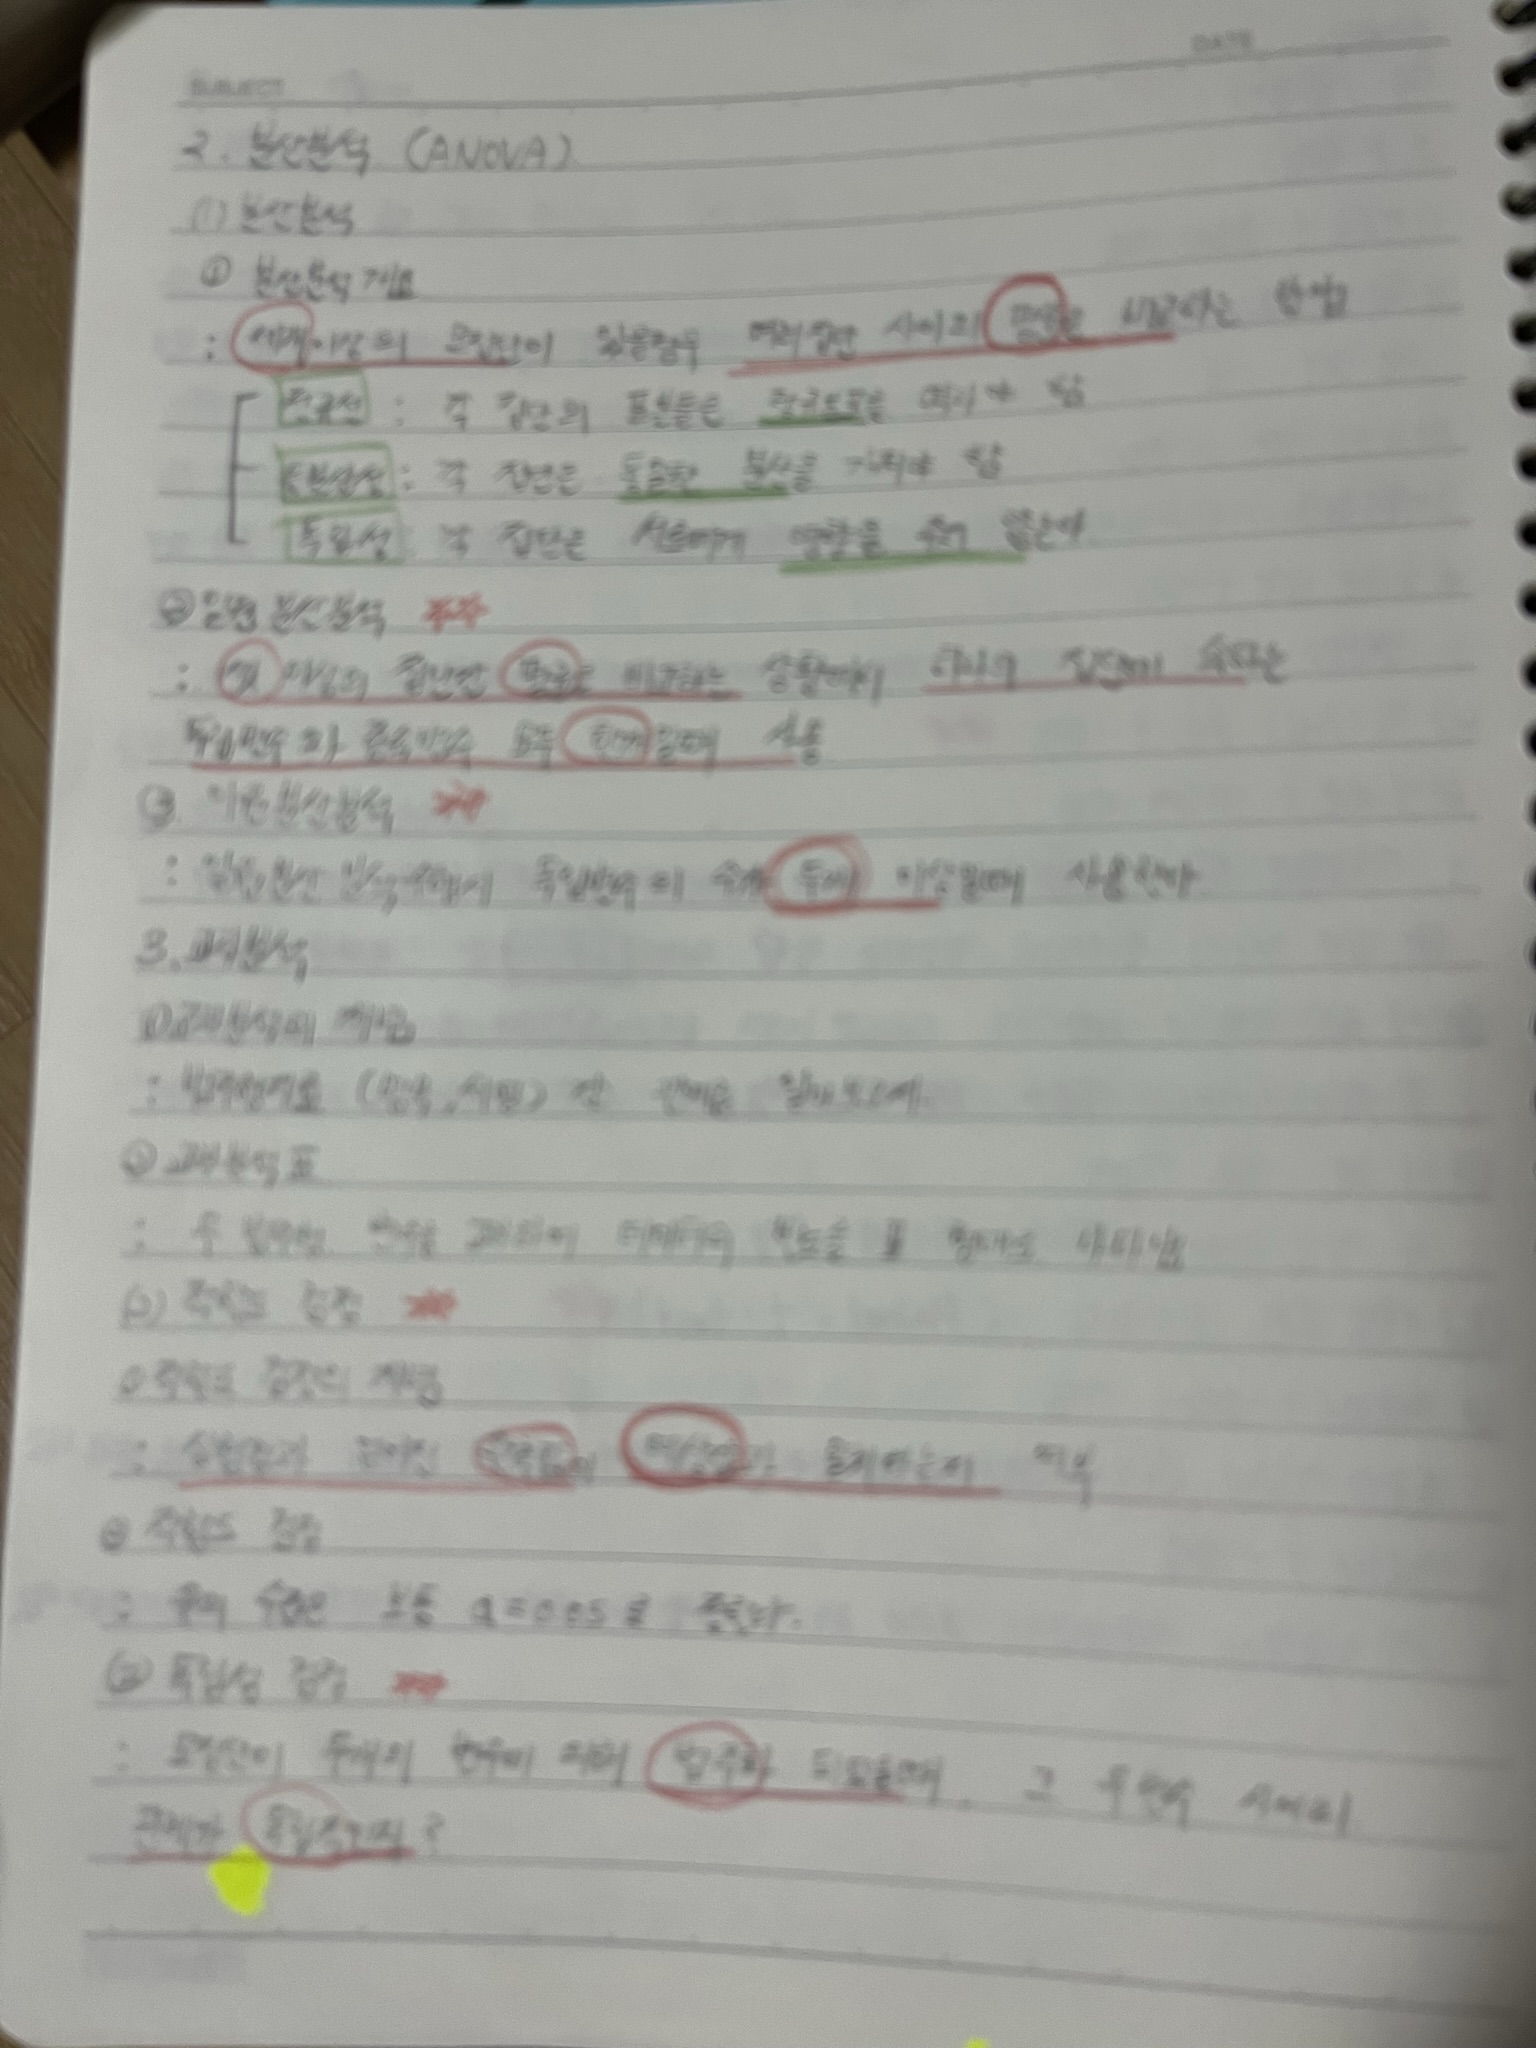 SUBJECT
DATE
2. 분산분석 (ANOVA)
(1) 분산분석
① 분산분석 개요
: 세개이상의 모집단이 있을경우 여러집단 사이의 평균을 비교하는 방법
정규성 : 각 집단의 표본들은 정규분포를 여야 함
등분산성 : 각 집단은 동일한 분산을 가져야 함
독립성 각 집단은 서로에게 영향을 주지 않는다
② 일원분산분석
: 셋 이상의 집단간 평균을 비교하는 상황에서 하나의 집단에 속하는
독립변수와 종속변수 모두 한개일때 사용
③ 이원분산분석
: 일원분산분석에서 독립변수의 수가 두개 이상일때 사용한다
3. 교차분석
① 교차분석의 개념
: 범주형자료 (명목, 서열) 간 관계를 알아보고
② 교차분석표
: 두 변수를 교차하여 빈도를 표 형태로 나타냄
적합도 검정
① 적합도 검정의 개념
: 실험결과 얻어진 예상 일치하는지 여부
② 적합도 검정
: 유의수준은 보통 α=0.05로 정한다.
독립성 검정
: 모집단이 두개의 변수에 의해 범주화 되었을때, 그 두변수 사이의
관계가 독립적인지?